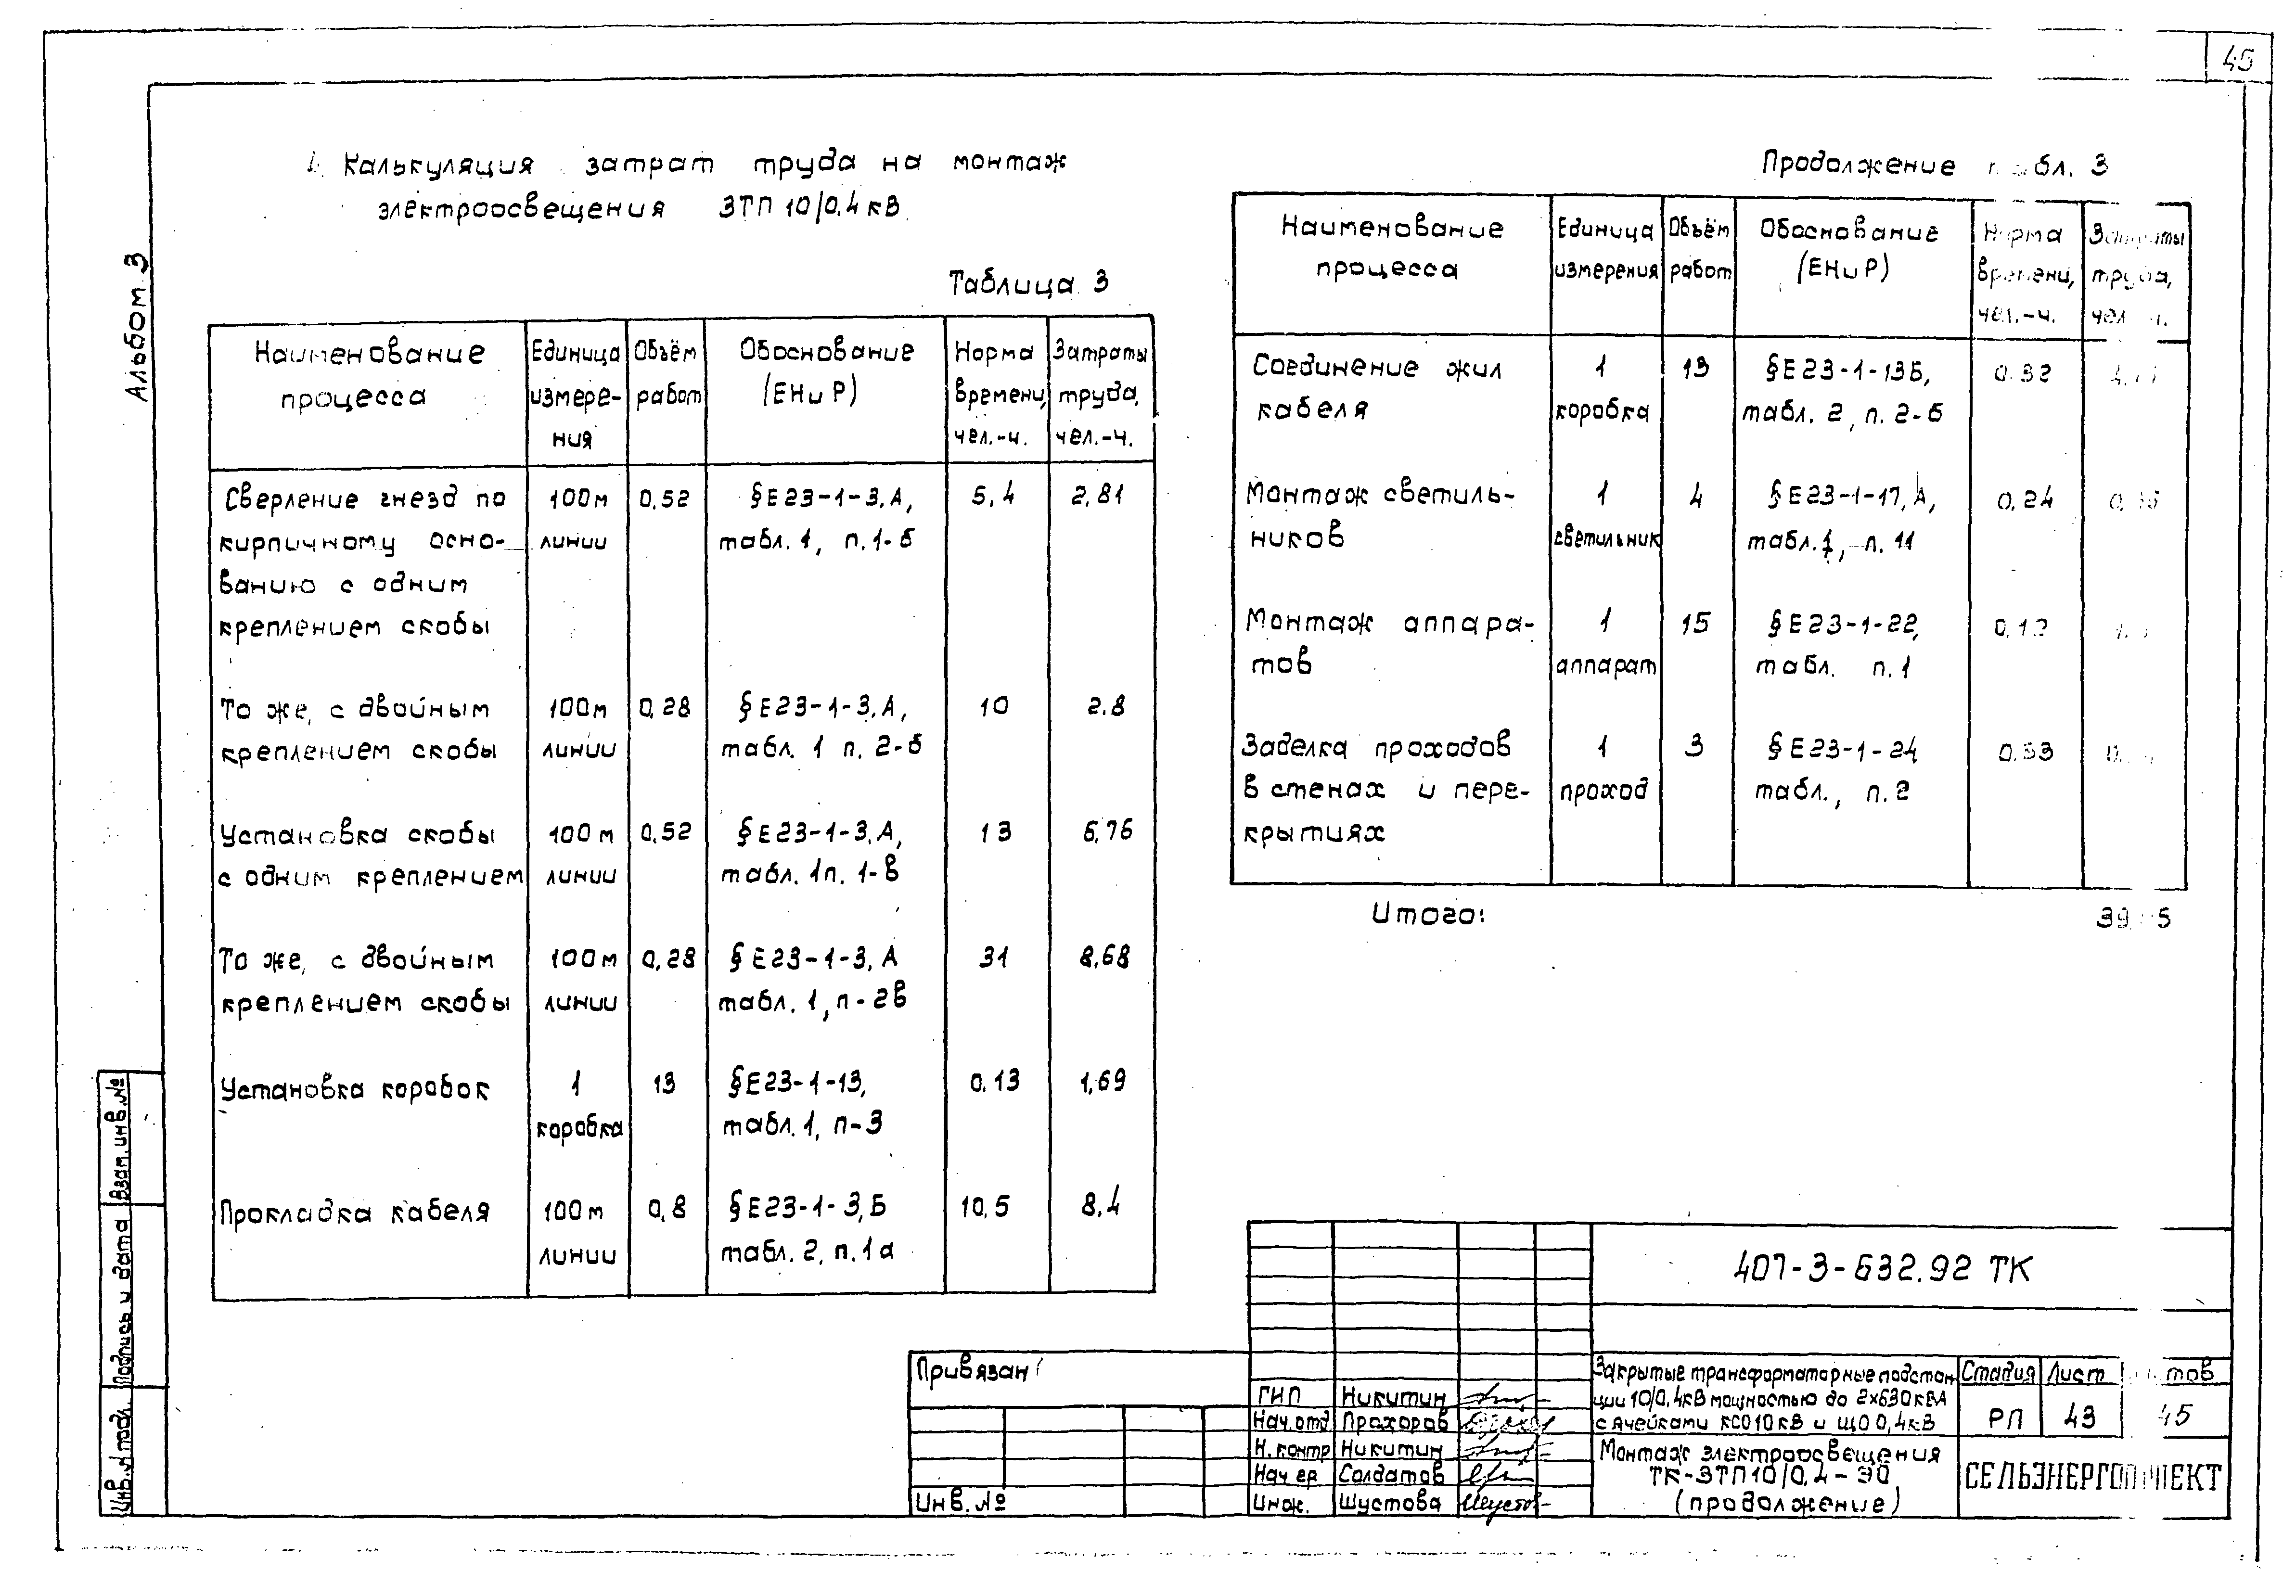 45
Альбом 3
Калькуляция затрат труда на монтаж
электроосвещения ЗТП 10/0,4 кВ
Таблица 3
Наименование процесса | Единица измере-ния | Объём работ | Обоснование (ЕНиР) | Норма времени, чел.-ч. | Затраты труда, чел.-ч.
Сверление гнезд по | 100м | 0,52 | §Е23-1-3,А, | 5,4 | 2,81
кирпичному осно- | линии | табл.1, п.1-б
ванию с одним
креплением скобы
То же, с двойным | 100м | 0,28 | §Е23-1-3,А, | 10 | 2,8
креплением скобы | линии | табл. 1 п. 2-б
Установка скобы | 100м | 0,52 | §Е23-1-3,А, | 13 | 6,76
с одним креплением | линии | табл. 1п. 1-в
То же, с двойным | 100м | 0,28 | §Е23-1-3,А | 31 | 8,68
креплением скобы | линии | табл. 1, п-2в
Установка коробок | 1 | 13 | §Е23-1-13, | 0,13 | 1,69
коробка | табл.1, п-3
Прокладка кабеля | 100м | 0,8 | §Е23-1-3,Б | 10,5 | 8,4
линии | табл. 2, п.1а
Продолжение табл. 3
Наименование процесса | Единица измерения | Объём работ | Обоснование (ЕНиР) | Норма времени, чел.-ч. | Затраты труда, чел.-ч.
Соединение жил | 1 | 13 | §Е23-1-13Б, | 0,32
кабеля | коробка | табл. 2, п. 2-б
Монтаж светиль- | 1 | 4 | §Е23-1-17,А, | 0,24
ников | светильник | табл.1, п. 11
Монтаж аппара- | 1 | 15 | §Е23-1-22,
тов | аппарат | табл. п.1
Заделка проходов | 1 | 3 | §Е23-1-24
в стенах и пере- | проход | табл., п.2
крытиях
Итого:
407-3-632.92 ТК
Привязан
Инв. №
ГИП Никитин
Нач.отд Прохоров
Н.контр Никитин
Нач гр Солдатов
Инж. Шустова
Закрытые трансформаторные подстан
ции 10/0,4кВ мощностью до 2х630кВА
с ячейками КСО10кВ и ЩО 0,4кВ
Стадия Лист Листов
РП 43 45
Монтаж электроосвещения
ТК-ЗТП10/0,4-ЭО
(продолжение)
СЕЛЬЭНЕРГОПРОЕКТ
Взам.инв.№
Подпись и дата
Инв.№подл.